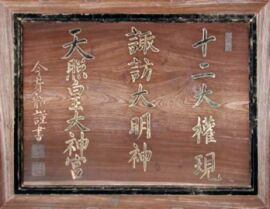 十二大權現
諏訪大明神
天照皇大神宮
謹書